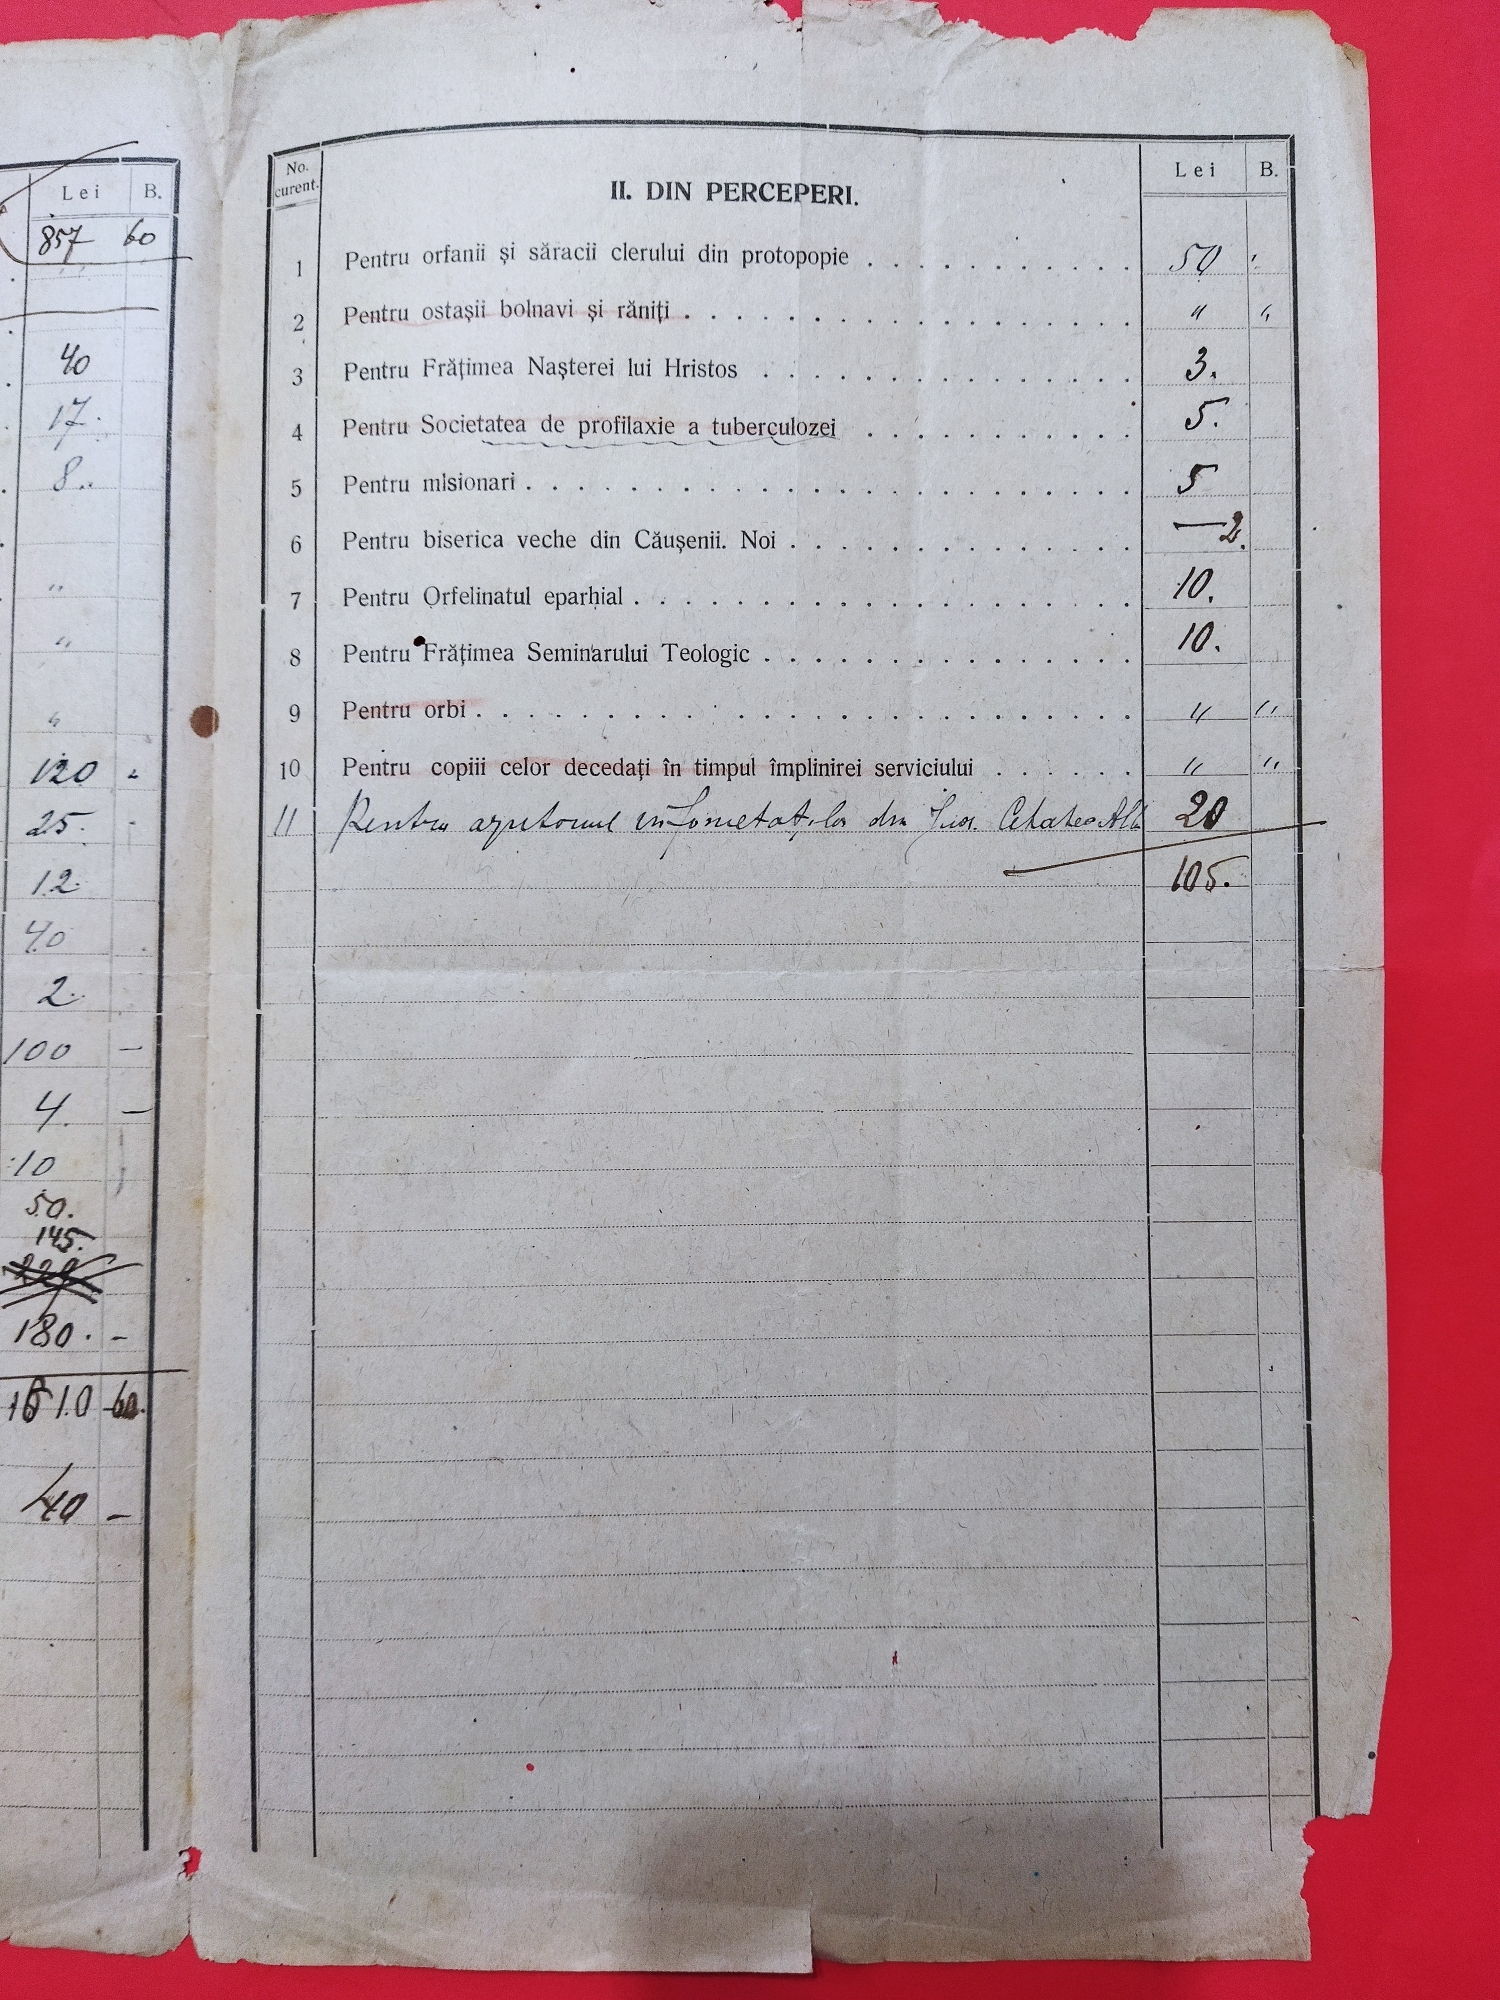 Lei B.
857 60
" "
40
17.
8..
"
"
"
120 "
25. -
12.
40
2.
100 -
4. -
10
50.
145.
180. -
1610 60.
40 -
No. curent. II. DIN PERCEPERI. Lei B.
1 Pentru orfanii și săracii clerului din protopopie . . . . . . . . . . . 50 "
2 Pentru ostașii bolnavi și răniți . . . . . . . . . . . . . . . . . . " "
3 Pentru Frățimea Nașterei lui Hristos . . . . . . . . . . . . . . . 3.
4 Pentru Societatea de profilaxie a tuberculozei . . . . . . . . . . . 5.
5 Pentru misionari . . . . . . . . . . . . . . . . . . . . . . . . 5
6 Pentru biserica veche din Căușenii. Noi . . . . . . . . . . . . . . —2.
7 Pentru Orfelinatul eparhial . . . . . . . . . . . . . . . . . . . . 10.
8 Pentru Frățimea Seminarului Teologic . . . . . . . . . . . . . . . 10.
9 Pentru orbi . . . . . . . . . . . . . . . . . . . . . . . . . . " "
10 Pentru copiii celor decedați în timpul împlinirei serviciului . . . . . . " "
11 Pentru ajutorul infometaților din Jud. Cetatea Albă 20
105.